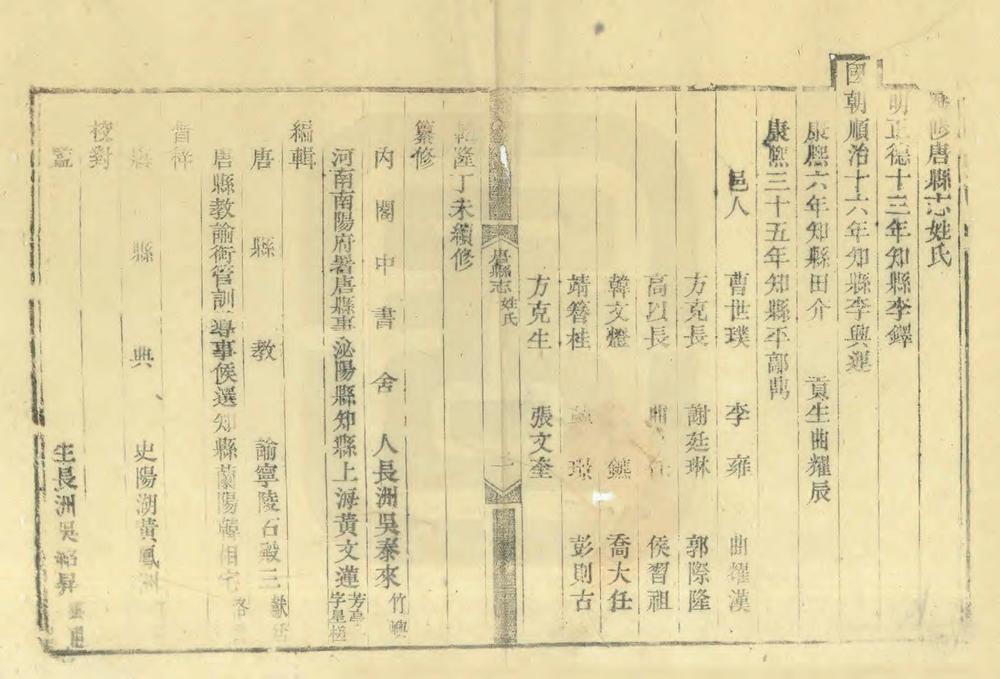 修唐縣志姓氏
明正德十三年知縣李鐸
國朝順治十六年知縣李興運
康熙六年知縣田介 貢生曲耀辰
康熙三十五年知縣平鄗鼎
邑人 曹世璞 李雍 曲耀漢
方克長 謝廷琳 郭際隆
高以長 曲 侯習祖
韓文燈 鑣 喬大任
靖簪桂 璟 彭則古
方克生 張文奎
唐縣志 姓氏 一
乾隆丁未續修
纂修
內閣中書舍人長洲吳泰來 竹嶼
河南南陽府署唐縣事泌陽縣知縣上海黃文蓮 芳亭 字星槎
編輯
唐縣教諭寧陵石殿三
唐縣教諭銜管訓導事候選知縣蘭陽韓相
督梓
唐縣典史陽湖黃鳳洲
校對
監生長洲吳紹昇